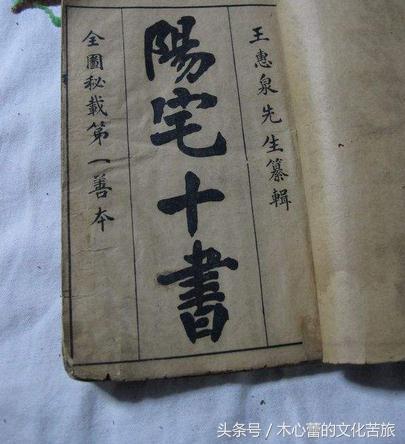 王惠泉先生纂輯
陽宅十書
全圖秘載第一善本
头条号／木心蕾的文化苦旅